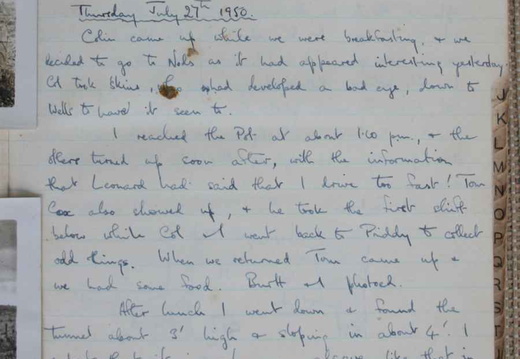 Thursday July 27th 1950.
Colin came up while we were breakfasting, & we
decided to go to Nods as it had appeared interesting yesterday.
Col took Skins, who had developed a bad eye, down to
Wells to have it seen to.
I reached the Pot at about 1.10 pm, & the
others turned up soon after, with the information
that Leonard had said that I drive too fast! Tom
Cox also showed up, & he took the first shift
below while Col & I went back to Priddy to collect
odd things. When we returned Tom came up &
we had some food. & I photoed.
After lunch I went down & found the
tunnel about 3' high & sloping in about 4'. I
like that in
J
K
L
M
N
O
P
Q
R
S
T